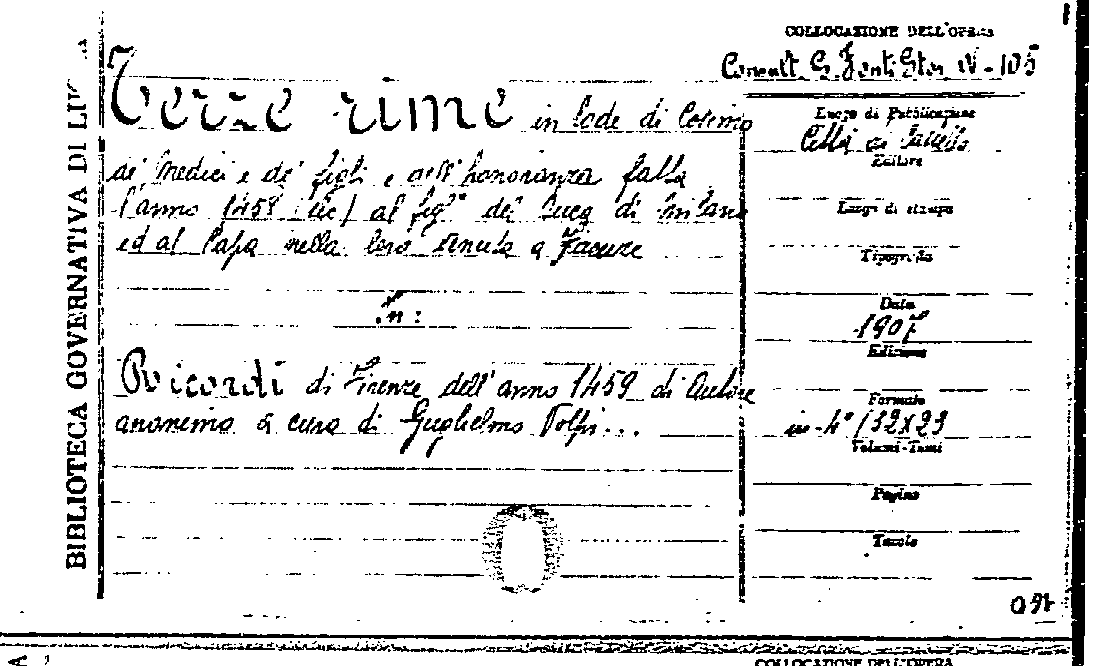 BIBLIOTECA GOVERNATIVA DI
COLLOCAZIONE DELL'OPERA
Consult. G. Fonti Stor. IV - 105
Terze rime in lode di Cosimo
de' Medici e de' figli e dell'honoranza fatta
l'anno 1458 (sic) al figl° del Duca di Milano
ed al Papa nella loro venuta a Firenze
In:
Ricordi di Firenze dell'anno 1459 di autore
anonimo a cura di Guglielmo Volpi...
Luogo di Pubblicazione
Città di Castello
Editore
Luogo di stampa
Tipografia
Data
1907
Edizione
Formato
in-4° /32x23
Volumi-Tomi
Pagine
Tavole
COLLOCAZIONE DELL'OPERA